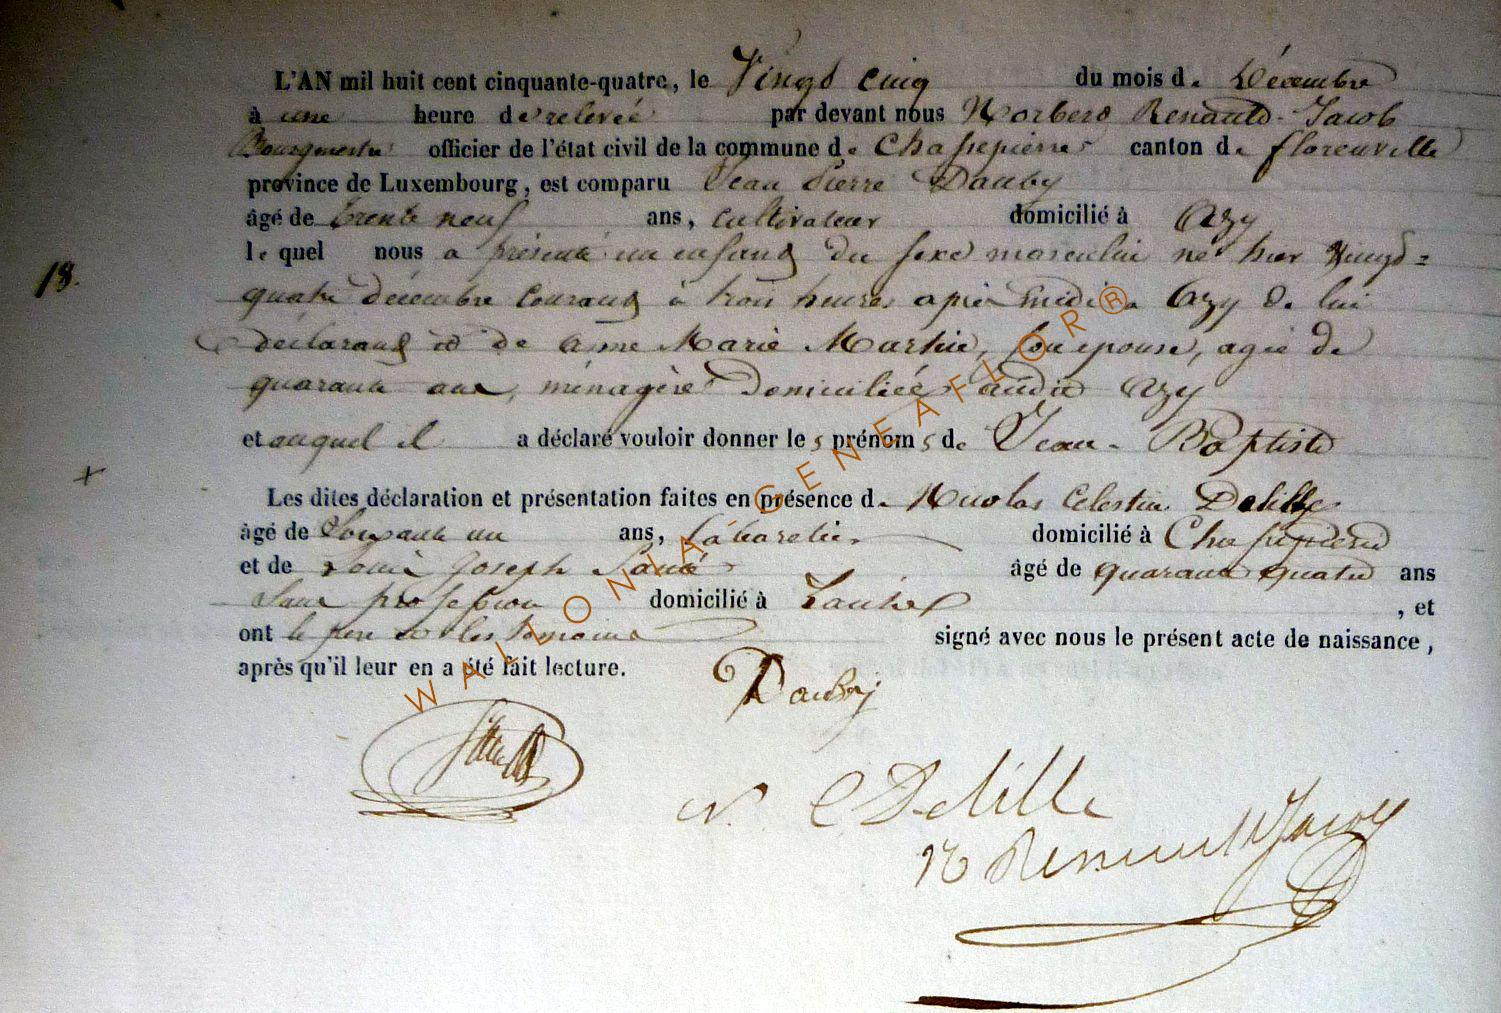 L'AN mil huit cent cinquante-quatre, le Vingt cinq du mois de Décembre
à une heure de relevée par devant nous Norbert Renauld-Jacob
Bourgmestre officier de l'état civil de la commune de Chassepierre canton de florenville
province de Luxembourg, est comparu Jean Pierre Dauby
âgé de trente neuf ans, cultivateur domicilié à Azy
le quel nous a présenté un enfant du sexe masculin né hier vingt=
18.
quatre décembre courant à trois heures après midi à Azy de lui
déclarant et de Anne Marie Martin, son épouse, agée de
quarante ans, ménagère domiciliée audit Azy
et auquel il a déclaré vouloir donner les prénoms de Jean-Baptiste
+
Les dites déclaration et présentation faites en présence de Nicolas Celestin Delille
âgé de soixante un ans, Cabaretier domicilié à Chassepierre
et de Louis Joseph âgé de quarante quatre ans
Sans profession domicilié à Laiche, et
ont le père et les témoins signé avec nous le présent acte de naissance,
après qu'il leur en a été fait lecture.
Dauby
N. C Delille
N Renauld Jacob
WALLONIA GENEAFLOR®